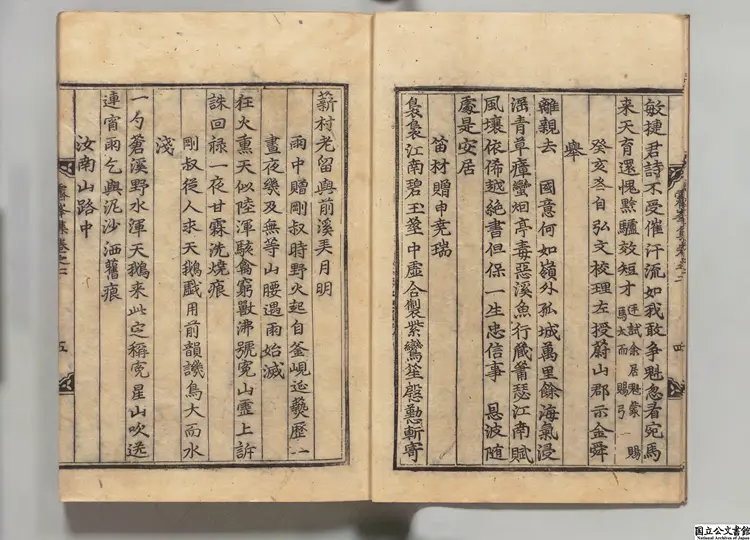 敏捷君詩不受催汗流如我敢爭魁忽看宛馬
来天育還愧黔驢效短才
廷試余居魁蒙 賜
馬大而 賜弓一
癸亥冬自弘文校理左授蔚山郡示金舜
舉
離親去 國意何如嶺外孤城萬里餘海氣浸
淫青草瘴蠻烟亭毒惡溪魚行藏蕭瑟江南賦
風壤依俙越絶書但保一生忠信事 恩波随
處是安居
笛材贈申堯瑞
裊裊江南碧玉莖中虛合製紫鸞笙慇懃斬寄
四
薪村老留與前溪弄月明
雨中贈剛叔時野火起自釜峴延爇歷一
晝夜幾及無等山腰遇雨始滅
狂火熏天似陸渾駭禽窮獸沸號寃山靈上訴
誅回祿一夜甘霖洗燒痕
剛叔從人求天鵝戲用前韻譏鳥大而水
淺
一勺蒼溪野水渾天鵝来此定稱寃星山吹送
連宵雨乞與泥沙洒舊痕
汝南山路中
霽峯集卷之二
五
国立公文書館
National Archives of Japan